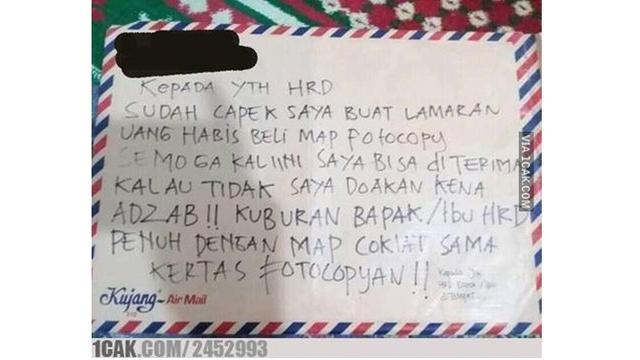 KEPADA YTH HRD
SUDAH CAPEK SAYA BUAT LAMARAN
UANG HABIS BELI MAP FOTOCOPY
SEMOGA KALI INI SAYA BISA DI TERIMA
KALAU TIDAK SAYA DOAKAN KENA
ADZAB!! KUBURAN BAPAK/IBU HRD
PENUH DENGAN MAP COKLAT SAMA
KERTAS FOTOCOPYAN!!
Kepada Yth
HRD
di Tempat
Kujang Air Mail
VIA 1CAK.COM
1CAK.COM/2452993